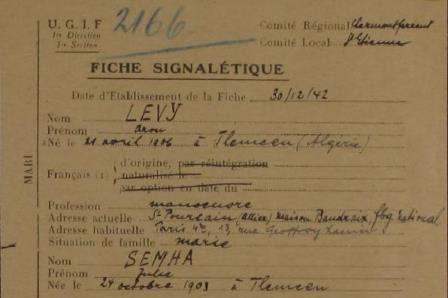 U. G. I. F
1re Direction
1re Section
2166
Comité Régional Clermont ferrand
Comité Local St Etienne
FICHE SIGNALÉTIQUE
Date d'Etablissement de la Fiche 30/12/42
MARI
Nom LEVY
Prénom Aron
Né le 21 avril 1906 à Tlemcen (Algérie)
Français (1) d'origine, par réintégration
naturalisé le
par option en date du
Profession manoeuvre
Adresse actuelle St Pourcain (Allier) maison Baudraix, fbg National
Adresse habituelle Paris 4e, 13, rue Geoffroy
Situation de famille marié
Nom SEMHA
Prénom Julie
Née le 24 octobre 1903 à Tlemcen